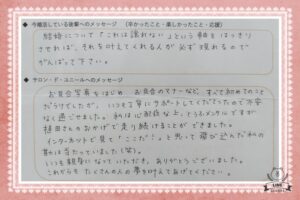 ◆ 今婚活している後輩へのメッセージ （辛かったこと・楽しかったこと・応援）
結婚について「これは譲れない」という軸をはっきり
させれば、それを叶えてくれる人が必ず現れるので
がんばって下さい。
◆ サロン・ド・ユニールへのメッセージ
お見合写真をはじめ、お見合のマナーなど、すべて初めてのこと
だらけでしたが、いつも丁寧にサポートしてくださったので不安
なく過ごせました。私は心配症な上、とうふメンタルですが
植田さんのおかげで走り続けることができました。
インターネットで見て"ここだ"と思って飛び込んだ私の
勘は当たっていました(笑)。
いつも親身になっていただき、ありがとうございました。
これからも たくさんの人の夢を叶えてあげてください。